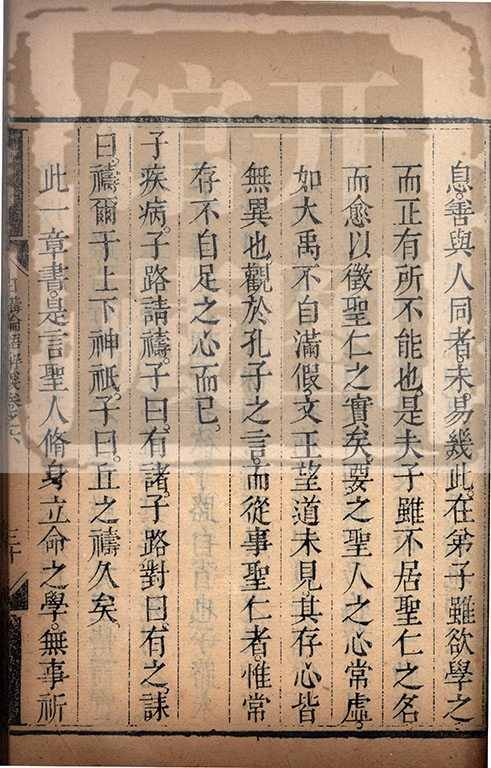 息善與人同者未易幾此。在弟子雖欲學之
而正有所不能也。是夫子雖不居聖仁之名
而愈以徵聖仁之實矣。要之聖人之心常虛。
如大禹不自滿假。文王望道未見。其存心皆
無異也。觀於孔子之言。而從事聖仁者。惟常
存不自足之心而已。
子疾病。子路請禱。子曰。有諸。子路對曰。有之。誄
曰。禱爾于上下神祇。子曰。丘之禱久矣。
此一章書。是言聖人脩身立命之學。無事祈
日講論語解義卷之六
三十